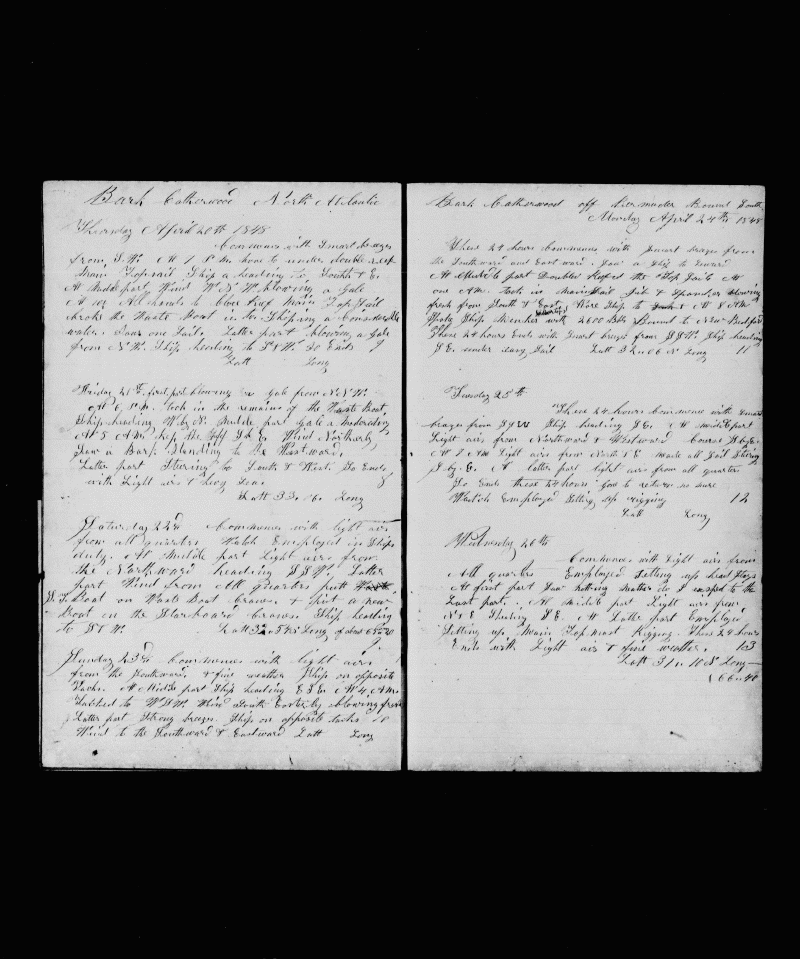 Bark Catherwood North Atlantic
Thursday April 20th 1848
Commences with Smart breezes
from S.W. At 7 P.M. hove to under double reef
Main Topsail Ship a heading to South & E.
At Middle part Wind W N W blowing a Gale
At 10 All hands to Close Reef Main Top Sail
broke the Waste Boat in to Shiping a Considerable
water. Saw one Sail. Latter part blowing a Gale
from N.W. Ship heading to S W. So Ends 9
Latt Long
Friday 21st, first part blowing a gale from N N W.
At 6 P.M. took in the remains of the Waste Boat,
Ship heading W by N. Middle part Gale a Moderating
At 5 A.M. kep the off S b E Wind Northerly
Saw a Bark Standing to the Westward.
Latter part Stering to South & West. So Ends
with Light airs & heavy Sea. 8
Latt 33. 16. Long
Saturday 22nd Commences with light airs
from all quarters Watch Employed in Ships
duty. At Middle part Light airs from
the Northward heading S S W. Latter
part Wind from All quarters putt
Boat on Waste Boat Cranes & put a new
boat on the Starboard Cranes Ship heading
to S W. Latt 32. 54 N Long of about 65 20
9
Sunday 23rd Commences with light airs
from the Southward & fine weather Ship on opposite
Tacks. At Middle part Ship heading E S E At 4 A.M.
Tacked to W S W. Wind South Easterly blowing fresh
Latter part Strong breezes. Ship on opposite tacks 10
Wind to the Southward & Eastward Latt Long
Bark Catherwood off Bermudes Bound South
Monday April 24th 1848
These 24 hours Commences with Smart breezes from
the Southward and Eastward. Saw a Ship to Leward
At Middle part Double Reefed the Top Sails At
one A.M. took in Main Sail Jib & Spanker blowing
fresh from South & East. Wore Ship to At 8 A.M.
Ship with 2600 Bbls Bound to New Bedford
These 24 hours Ends with Smart breezes from S S W. Ship heading
S.E. under easy Sail Latt 32 06 N Long 11
Tuesday 25th
These 24 hours Commence with Smart
brezes from S S W Ship heading S.E. At middle part
Light airs from Northward & Westward Course S by E.
At 7 A.M. Light airs from North & E made all Sail Stering
S. by. E. A latter part light airs from all quarter
So Ends these 24 hours gon to return no more
Watch Employed Setting up rigging 12
Latt Long
Wednesday 26th
Commences with Light airs from
All quarters Employed Setting up head Stays
At first part Saw nothing neather do I exspect to the
Last part. At middle part Light airs from
N & E Stering S.E. At Latter part Employed
Setting up Main Top mast Rigging. These 24 hours
Ends with Light airs & fine weather. 13
Latt 31. 10 N Long
66 40